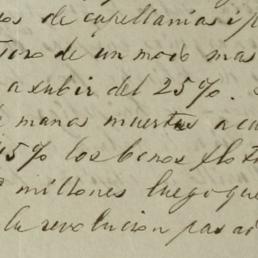 os de capellanias i p
tero de un modo mas
a subir del 25%.
manos muertas a cu
5% los benos
millones luego que
la revolucion pasad